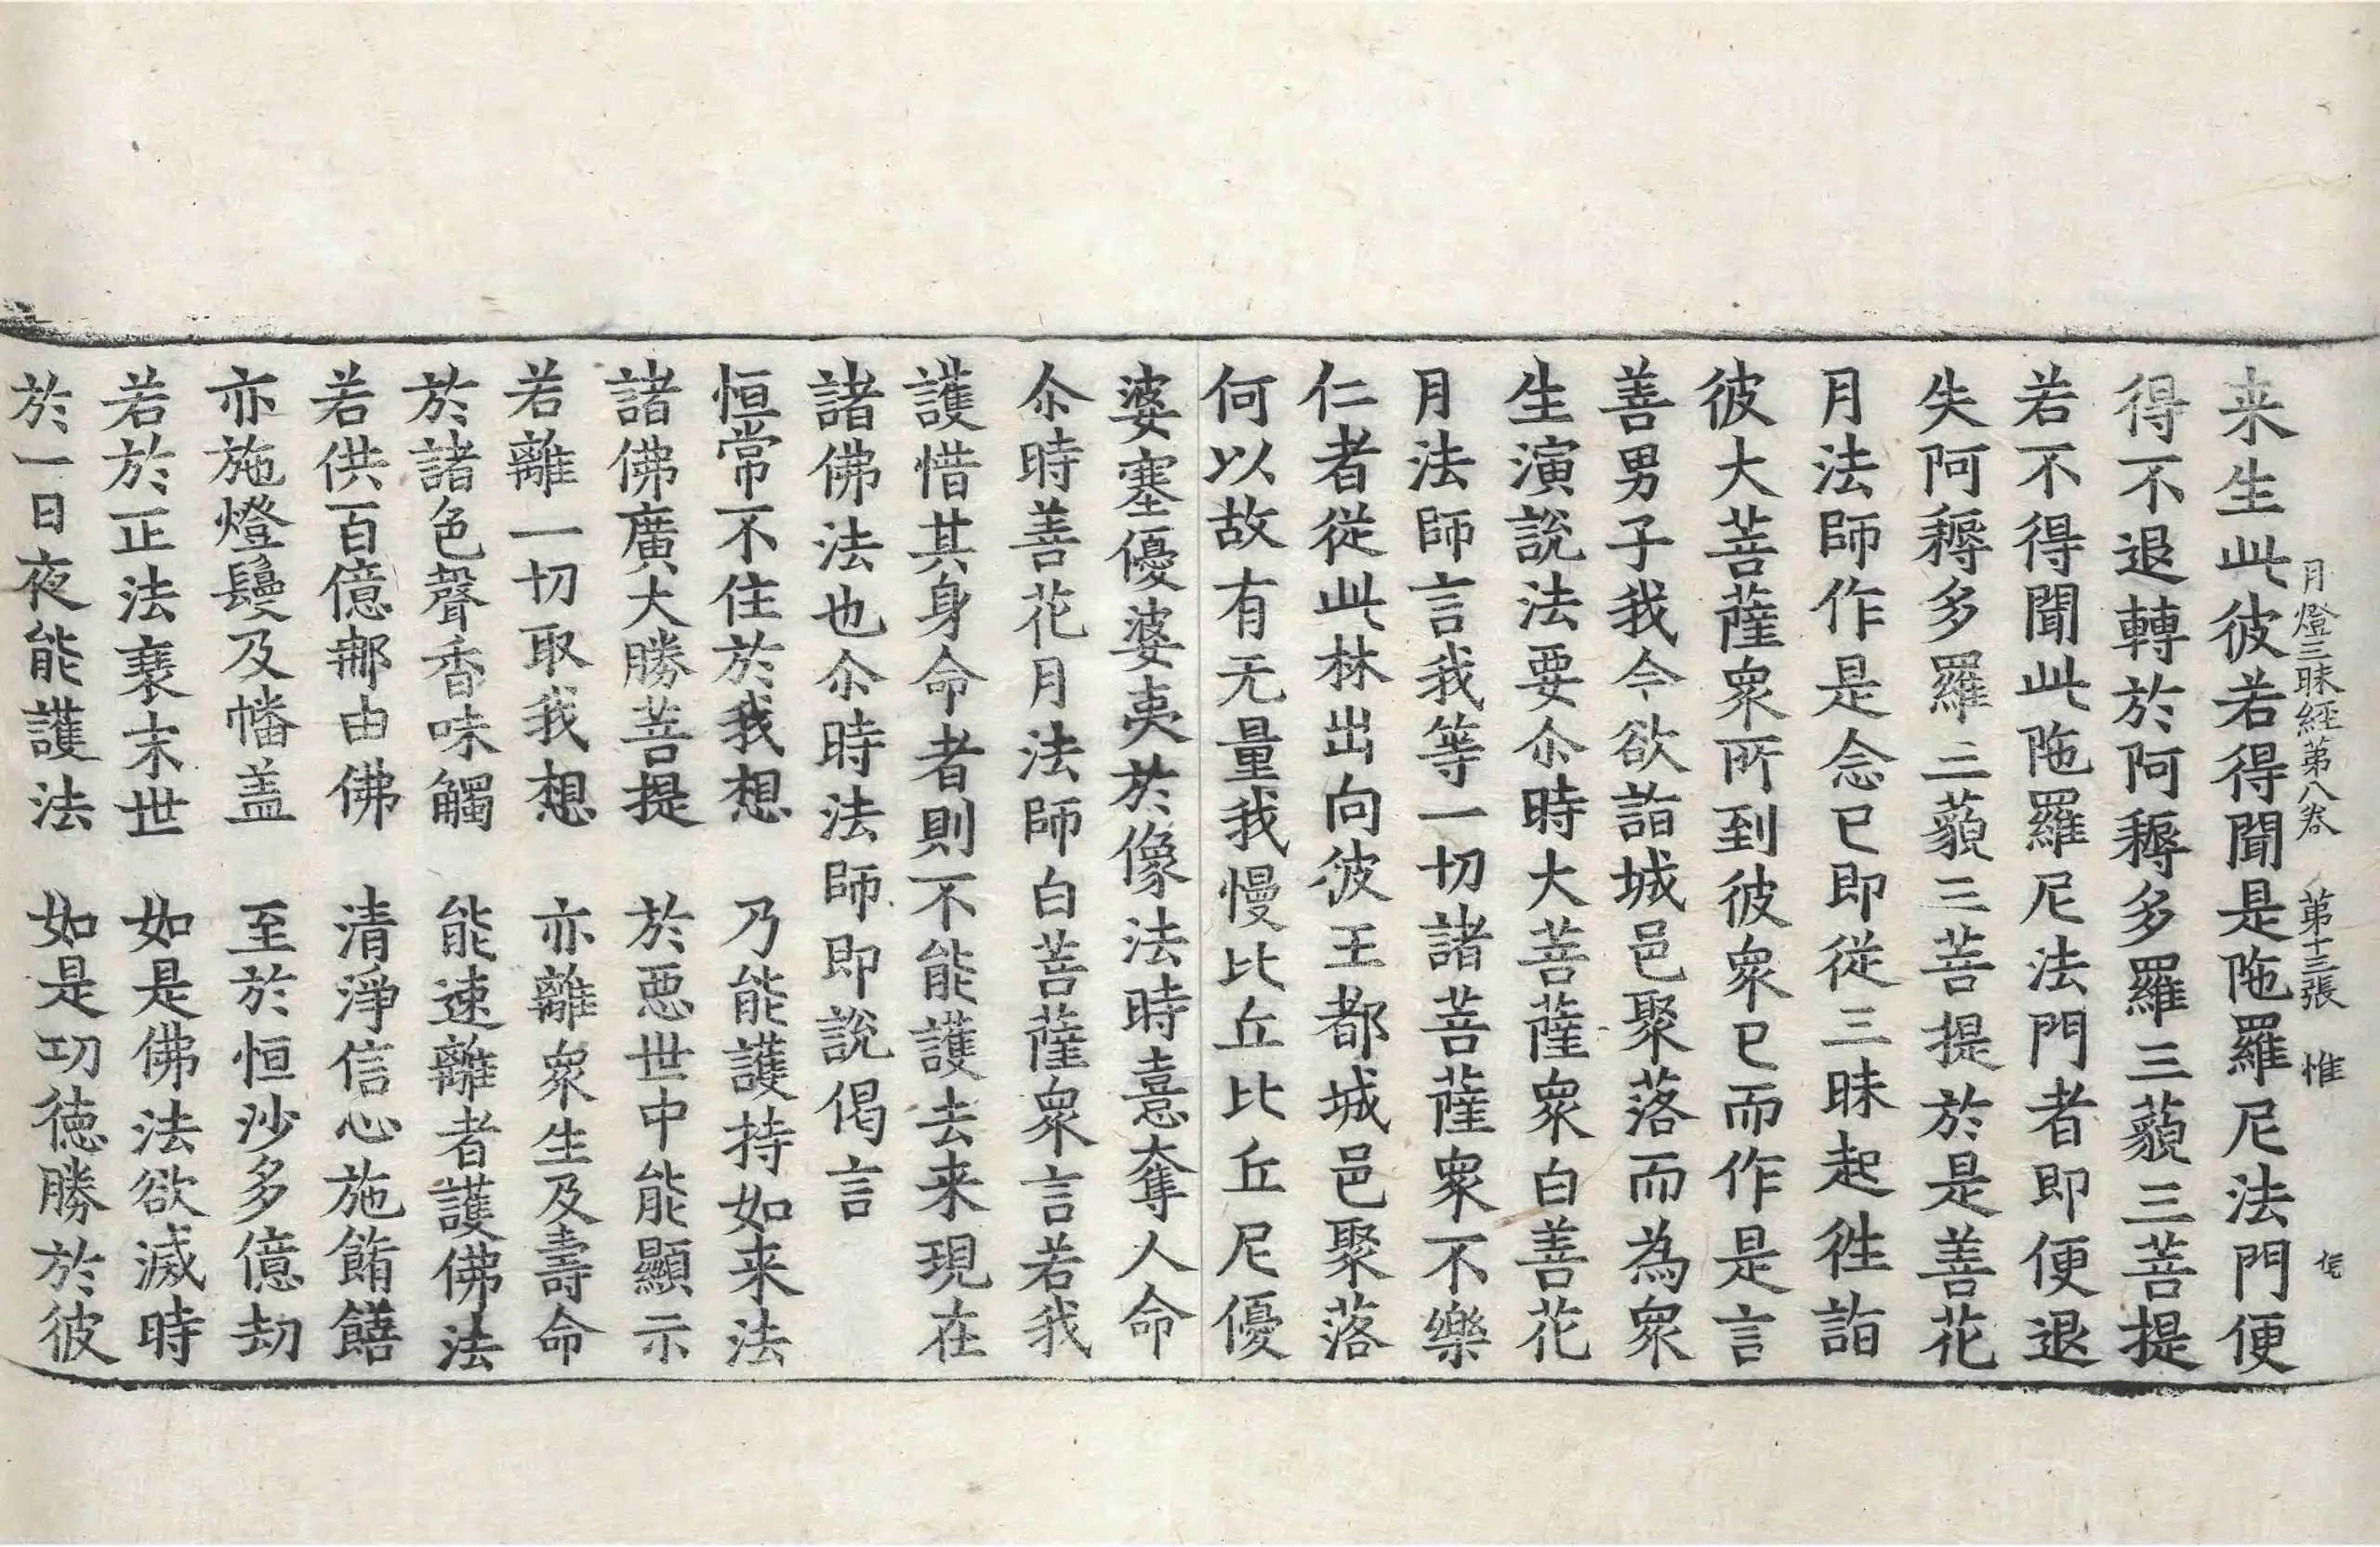 月燈三昧経第八卷 第十三張 惟
来生此彼若得聞是陁羅尼法門便
得不退轉於阿耨多羅三藐三菩提
若不得聞此陁羅尼法門者即便退
失阿耨多羅三藐三菩提於是善花
月法師作是念已即從三昧起往詣
彼大菩薩衆所到彼衆已而作是言
善男子我今欲詣城邑聚落而為衆
生演說法要尒時大菩薩衆白善花
月法師言我等一切諸菩薩衆不樂
仁者從此林出向彼王都城邑聚落
何以故有无量我慢比丘比丘尼優
婆塞優婆夷於像法時憙奪人命
尒時善花月法師白菩薩衆言若我
護惜其身命者則不能護去来現在
諸佛法也尒時法師即說偈言
恒常不住於我想 乃能護持如来法
諸佛廣大勝菩提 於惡世中能顯示
若離一切取我想 亦離衆生及壽命
於諸色聲香味觸 能速離者護佛法
若供百億那由佛 清淨信心施餚饍
亦施燈鬘及幡盖 至於恒沙多億劫
若於正法衰末世 如是佛法欲滅時
於一日夜能護法 如是功德勝於彼